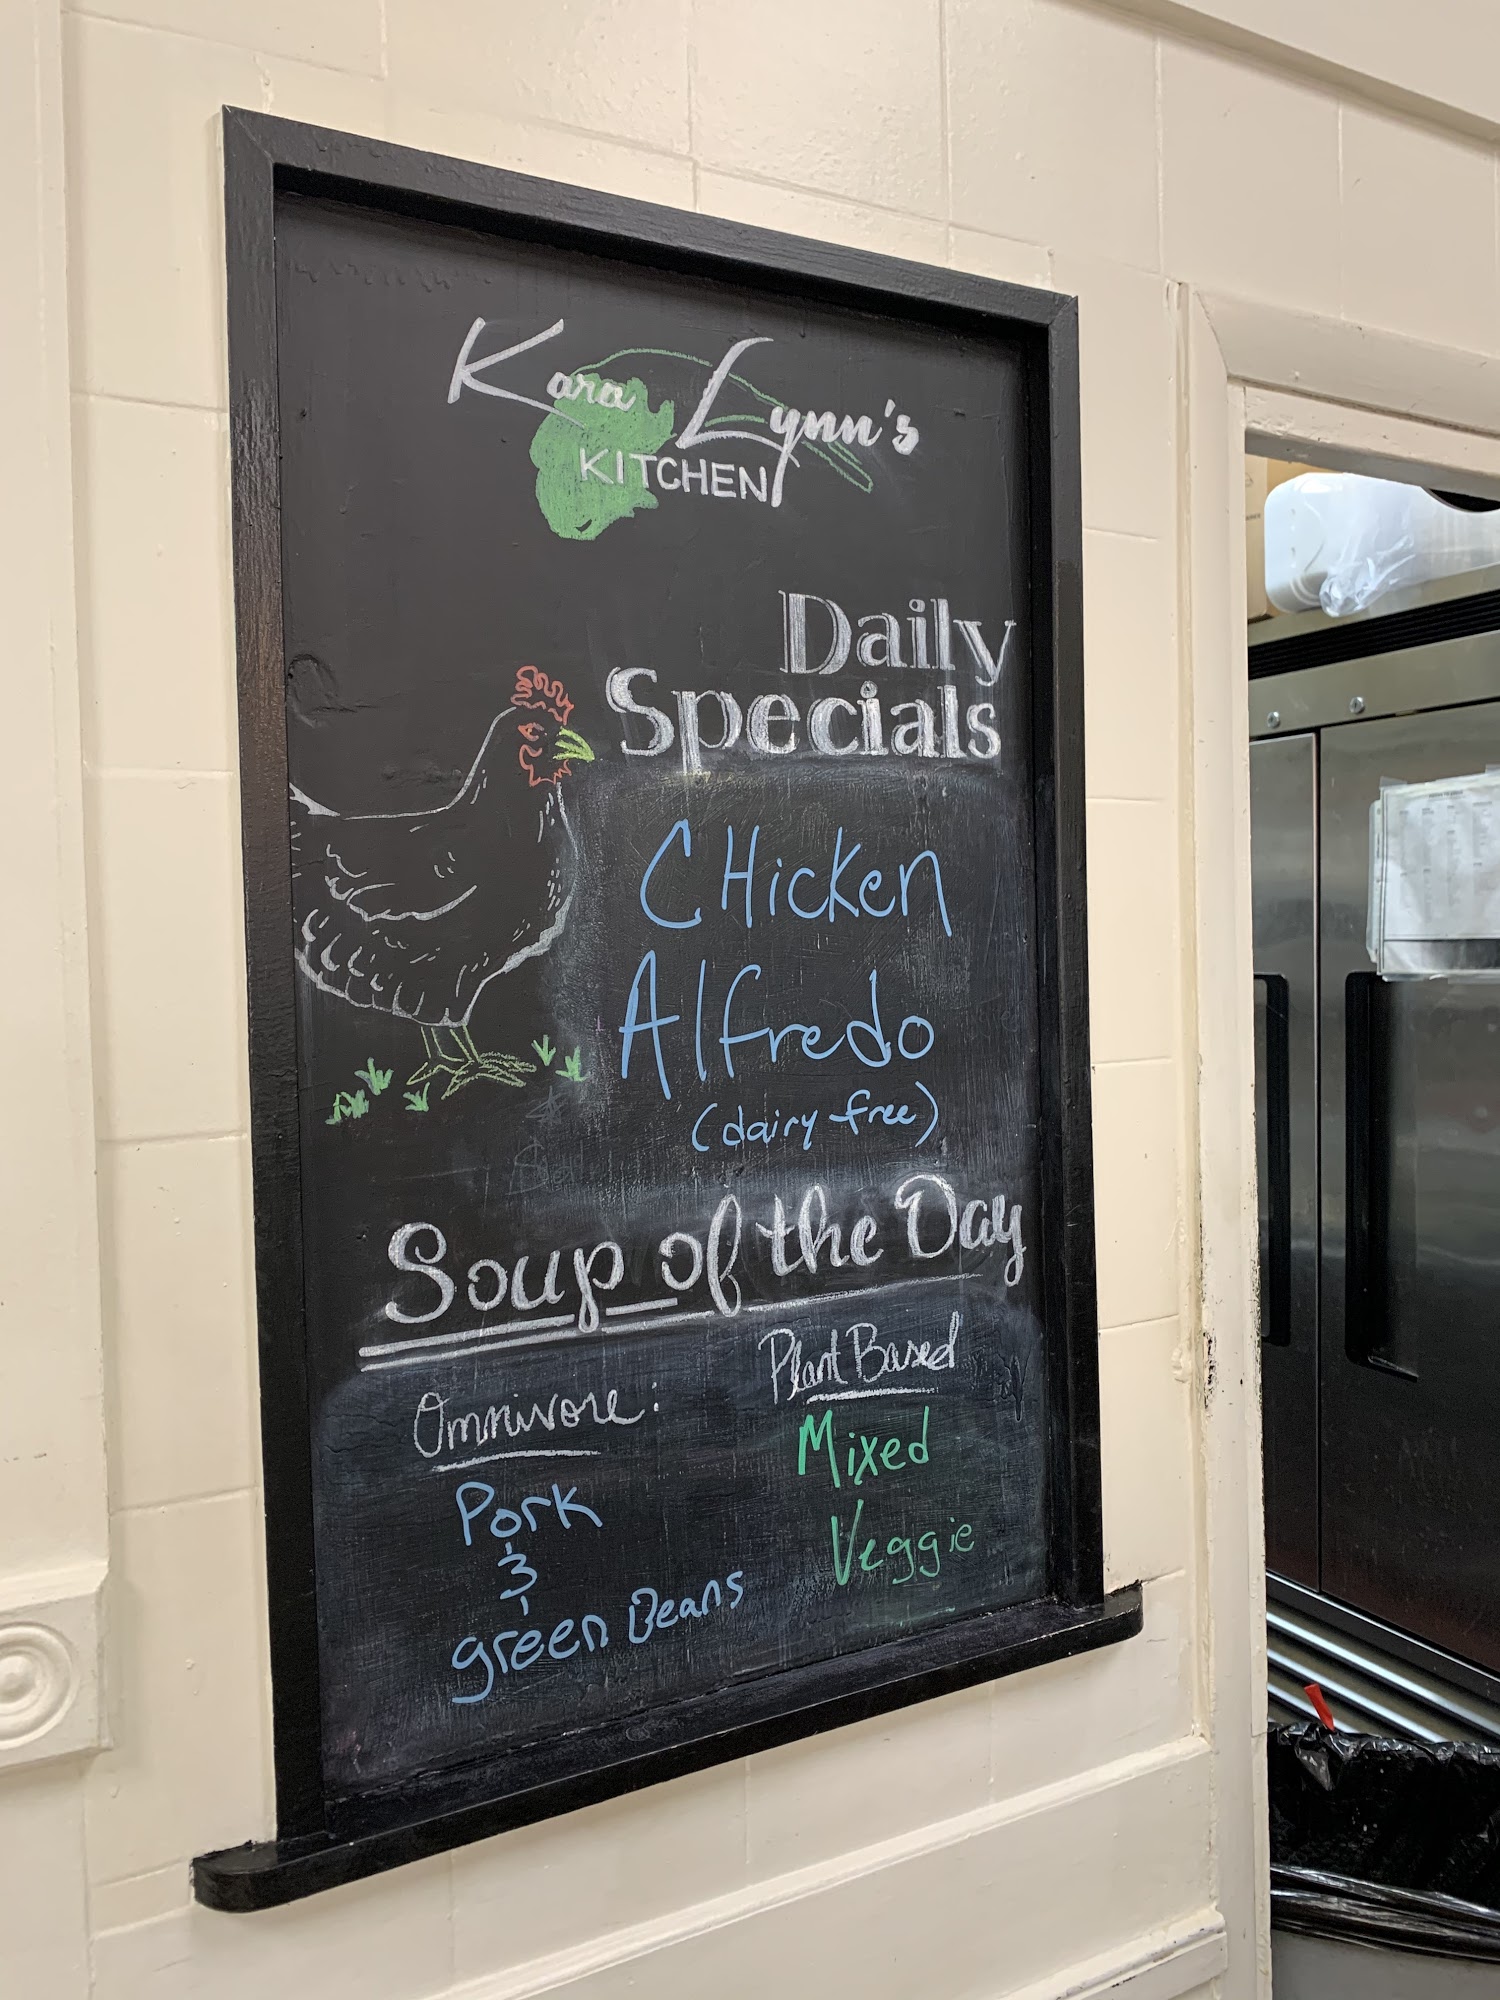 Kara Lynn's
KITCHEN
Daily
Specials
CHicken
Alfredo
(dairy free)
Soup of the Day
Omnivore:
Pork
&
green Beans
Plant Based
Mixed
Veggie